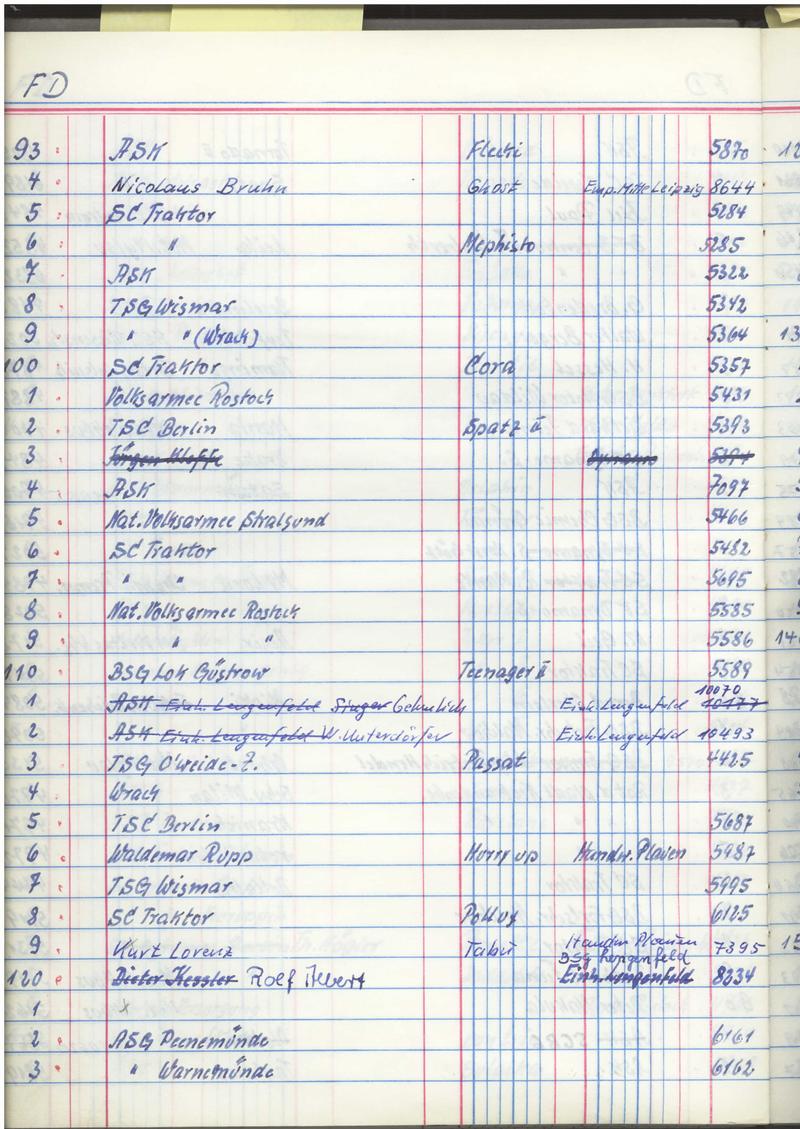 FD
93 ASK Flecki 5870
4 Nicolaus Bruhn Ghost Emp. Mitte Leipzig 8644
5 SC Traktor 5284
6 " Mephisto 5285
7 ASK 5322
8 TSG Wismar 5342
9 " " (Wrack) 5364
100 SC Traktor Cora 5357
1 Volksarmee Rostock 5431
2 TSC Berlin Spatz II 5393
3 Jürgen Kloffe Dynamo 5394
4 ASK 7097
5 Nat. Volksarmee Stralsund 5466
6 SC Traktor 5482
7 " " 5695
8 Nat. Volksarmee Rostock 5585
9 " " 5586
110 BSG Lok Güstrow Teenager II 5589
10070
1 ASK Einh. Lengenfeld Singer Gehmlich Einh. Lengenfeld 10177
2 ASK Einh. Lengenfeld W. Unterdörfer Einh. Lengenfeld 10493
3 TSG O'weide-Z. Passat 4425
4 Wrack
5 TSC Berlin 5687
6 Waldemar Rupp Hurry up Handw. Plauen 5987
7 TSG Wismar 5995
8 SC Traktor Pollux 6125
9 Kurt Lorenz Tabu Handw Plauen 7395
BSG Lengenfeld
120 Dieter Kessler Rolf Einh. Lengenfeld 8234
1 x
2 ASG Peenemünde 6161
3 " Warnemünde 6162
12
13
14
15